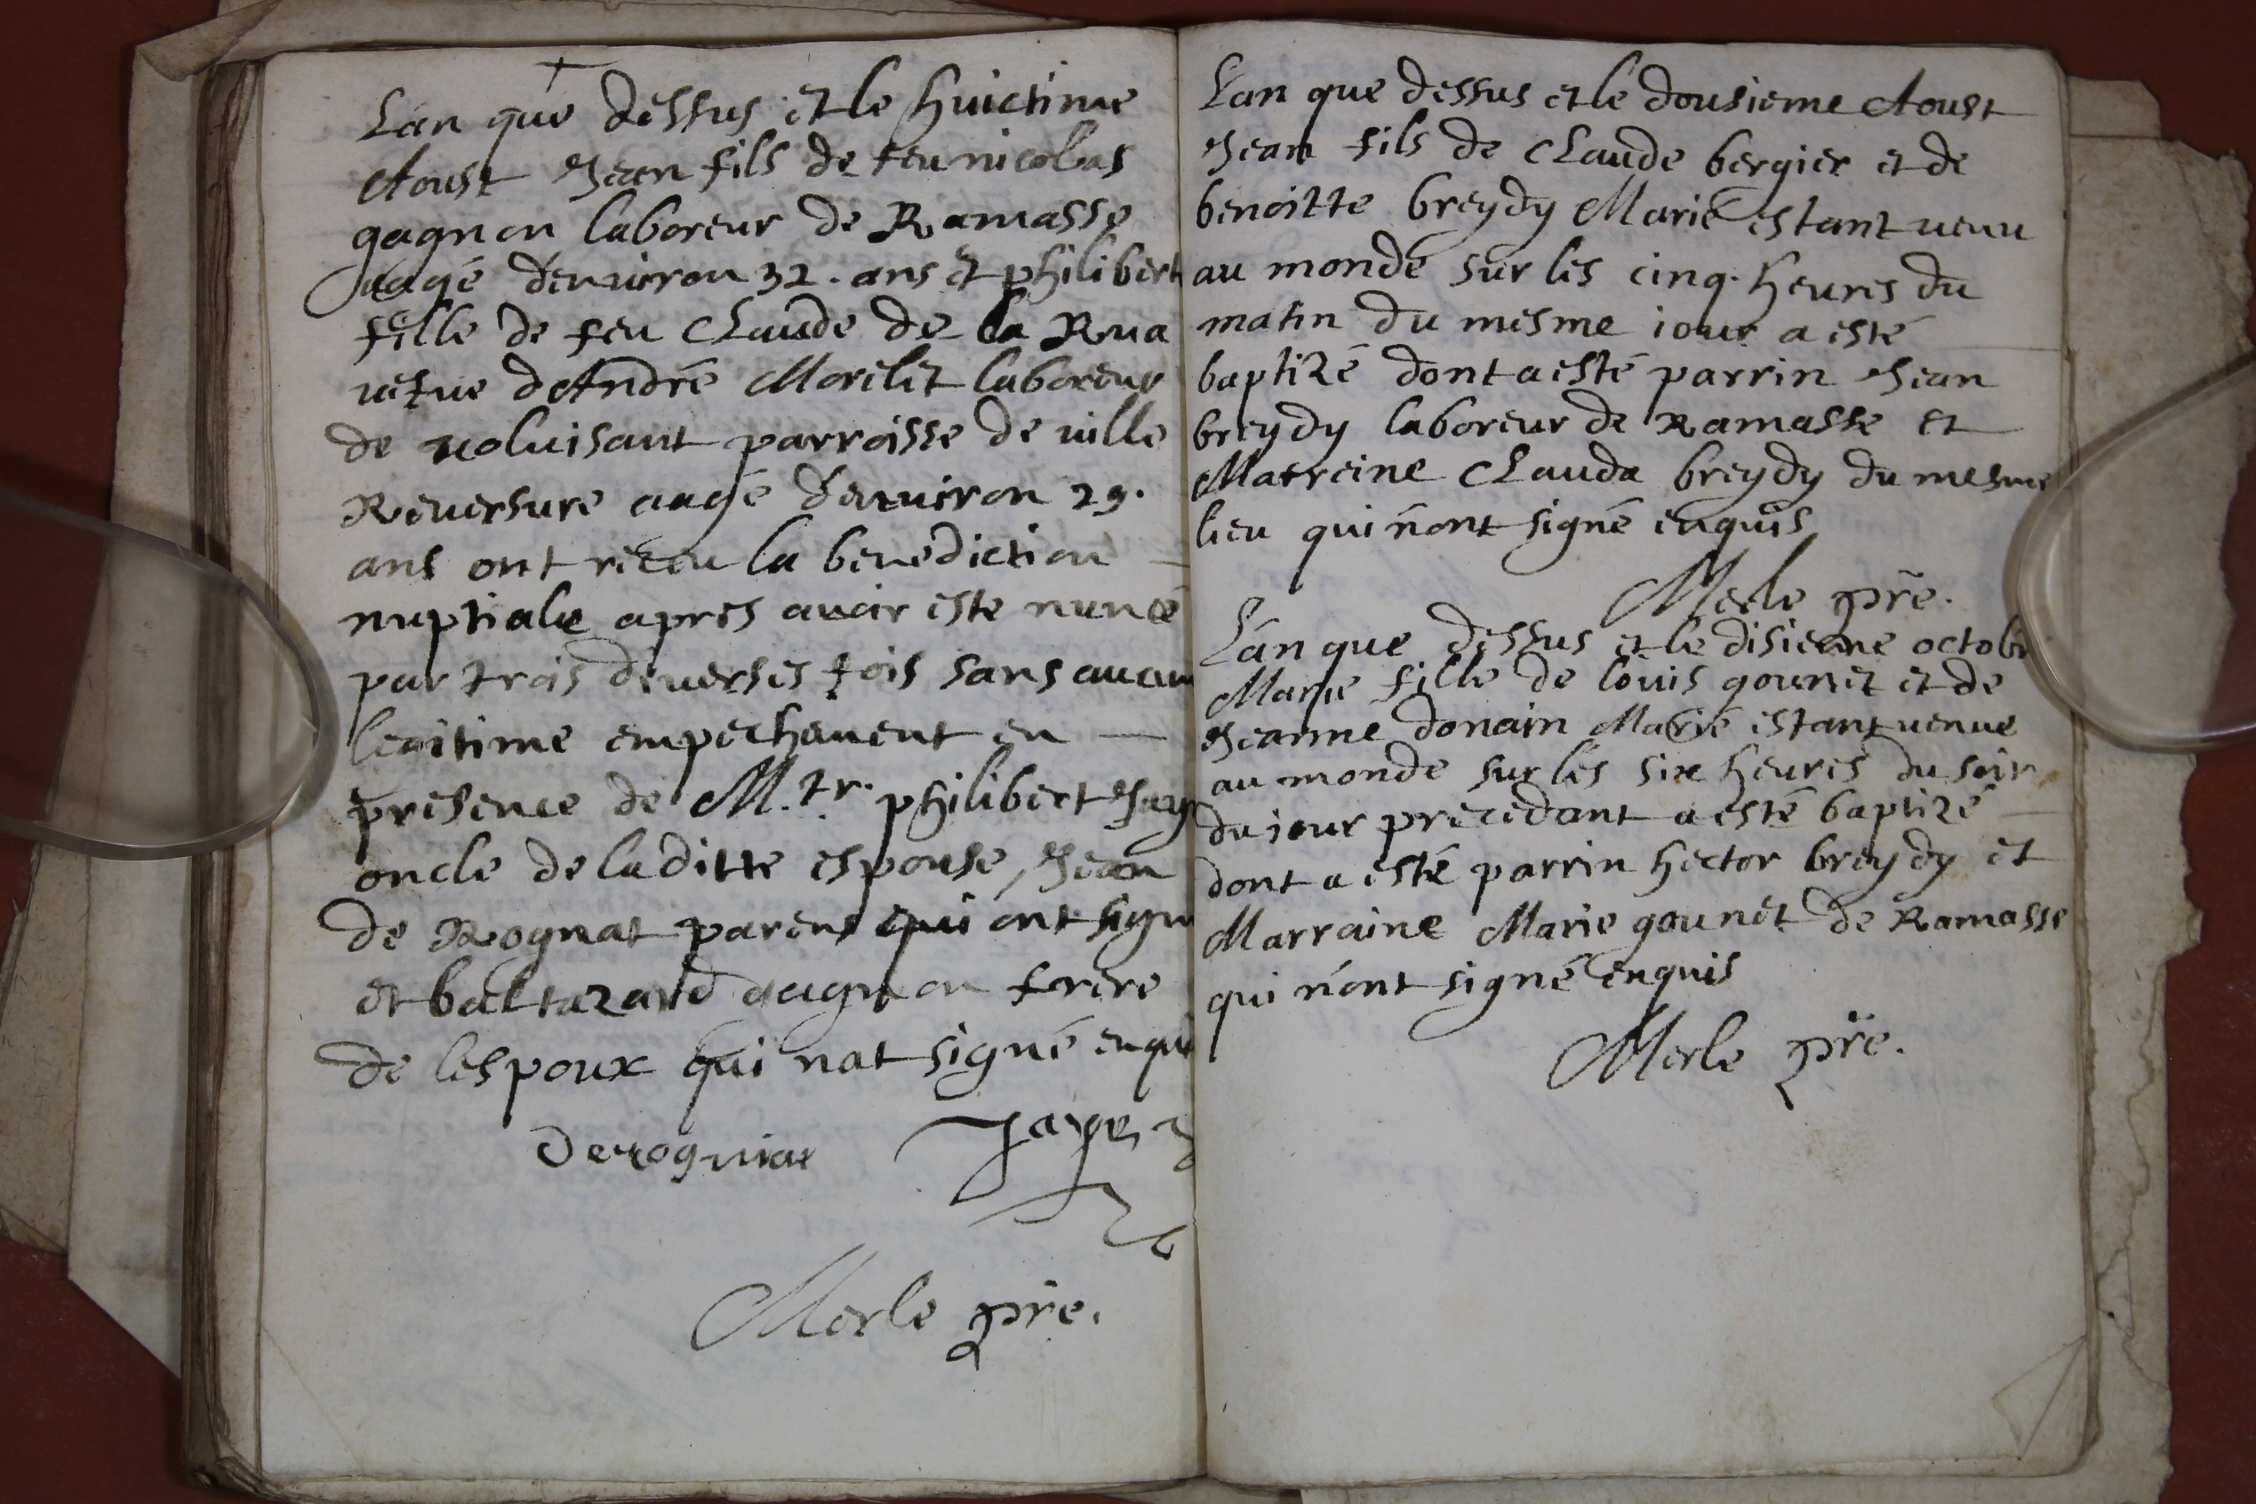 L'an que dessus et le huictime
Aoust Jean fils de feu nicolas
gagnon laboreur de Ramasse
aagé d'environ 32. ans et philibert
fille de feu Claude de la Rua
vefve d'André Morilet laboreur
de voluisant parroisse de ville
Reversure aagé d'environ 29.
ans ont receu la benediction
nuptiale apres avoir este
par trois diverses fois sans aucun
legitime empechement en
presence de M.tr. philibert Jay
oncle de laditte espouse, Jean
de Rognat parent qui ont signé
et baltazard gagnon frere
de lespoux qui nat signé enqui
Derognat Jaye
Merle pre.
L'an que dessus et le dousieme Aoust
Jean fils de Claude bergier et de
benoitte breydy Marié estant venu
au monde sur les cinq. heures du
matin du mesme iour a esté
baptizé dont a esté parrin Jean
breydy laboreur de Ramasse et
Matreine Clauda breydy du mesme
lieu qui n'ont signé enquis
Merle pre.
L'an que dessus et le disieme octobr
Marie fille de louis gounet et de
Jeanne donain Marié estant venue
au monde sur les six heures du soir
du iour precedant a esté baptizé
dont a esté parrin hector breydy et
Marraine Marie gounet de Ramasse
qui n'ont signé enquis
Merle pre.